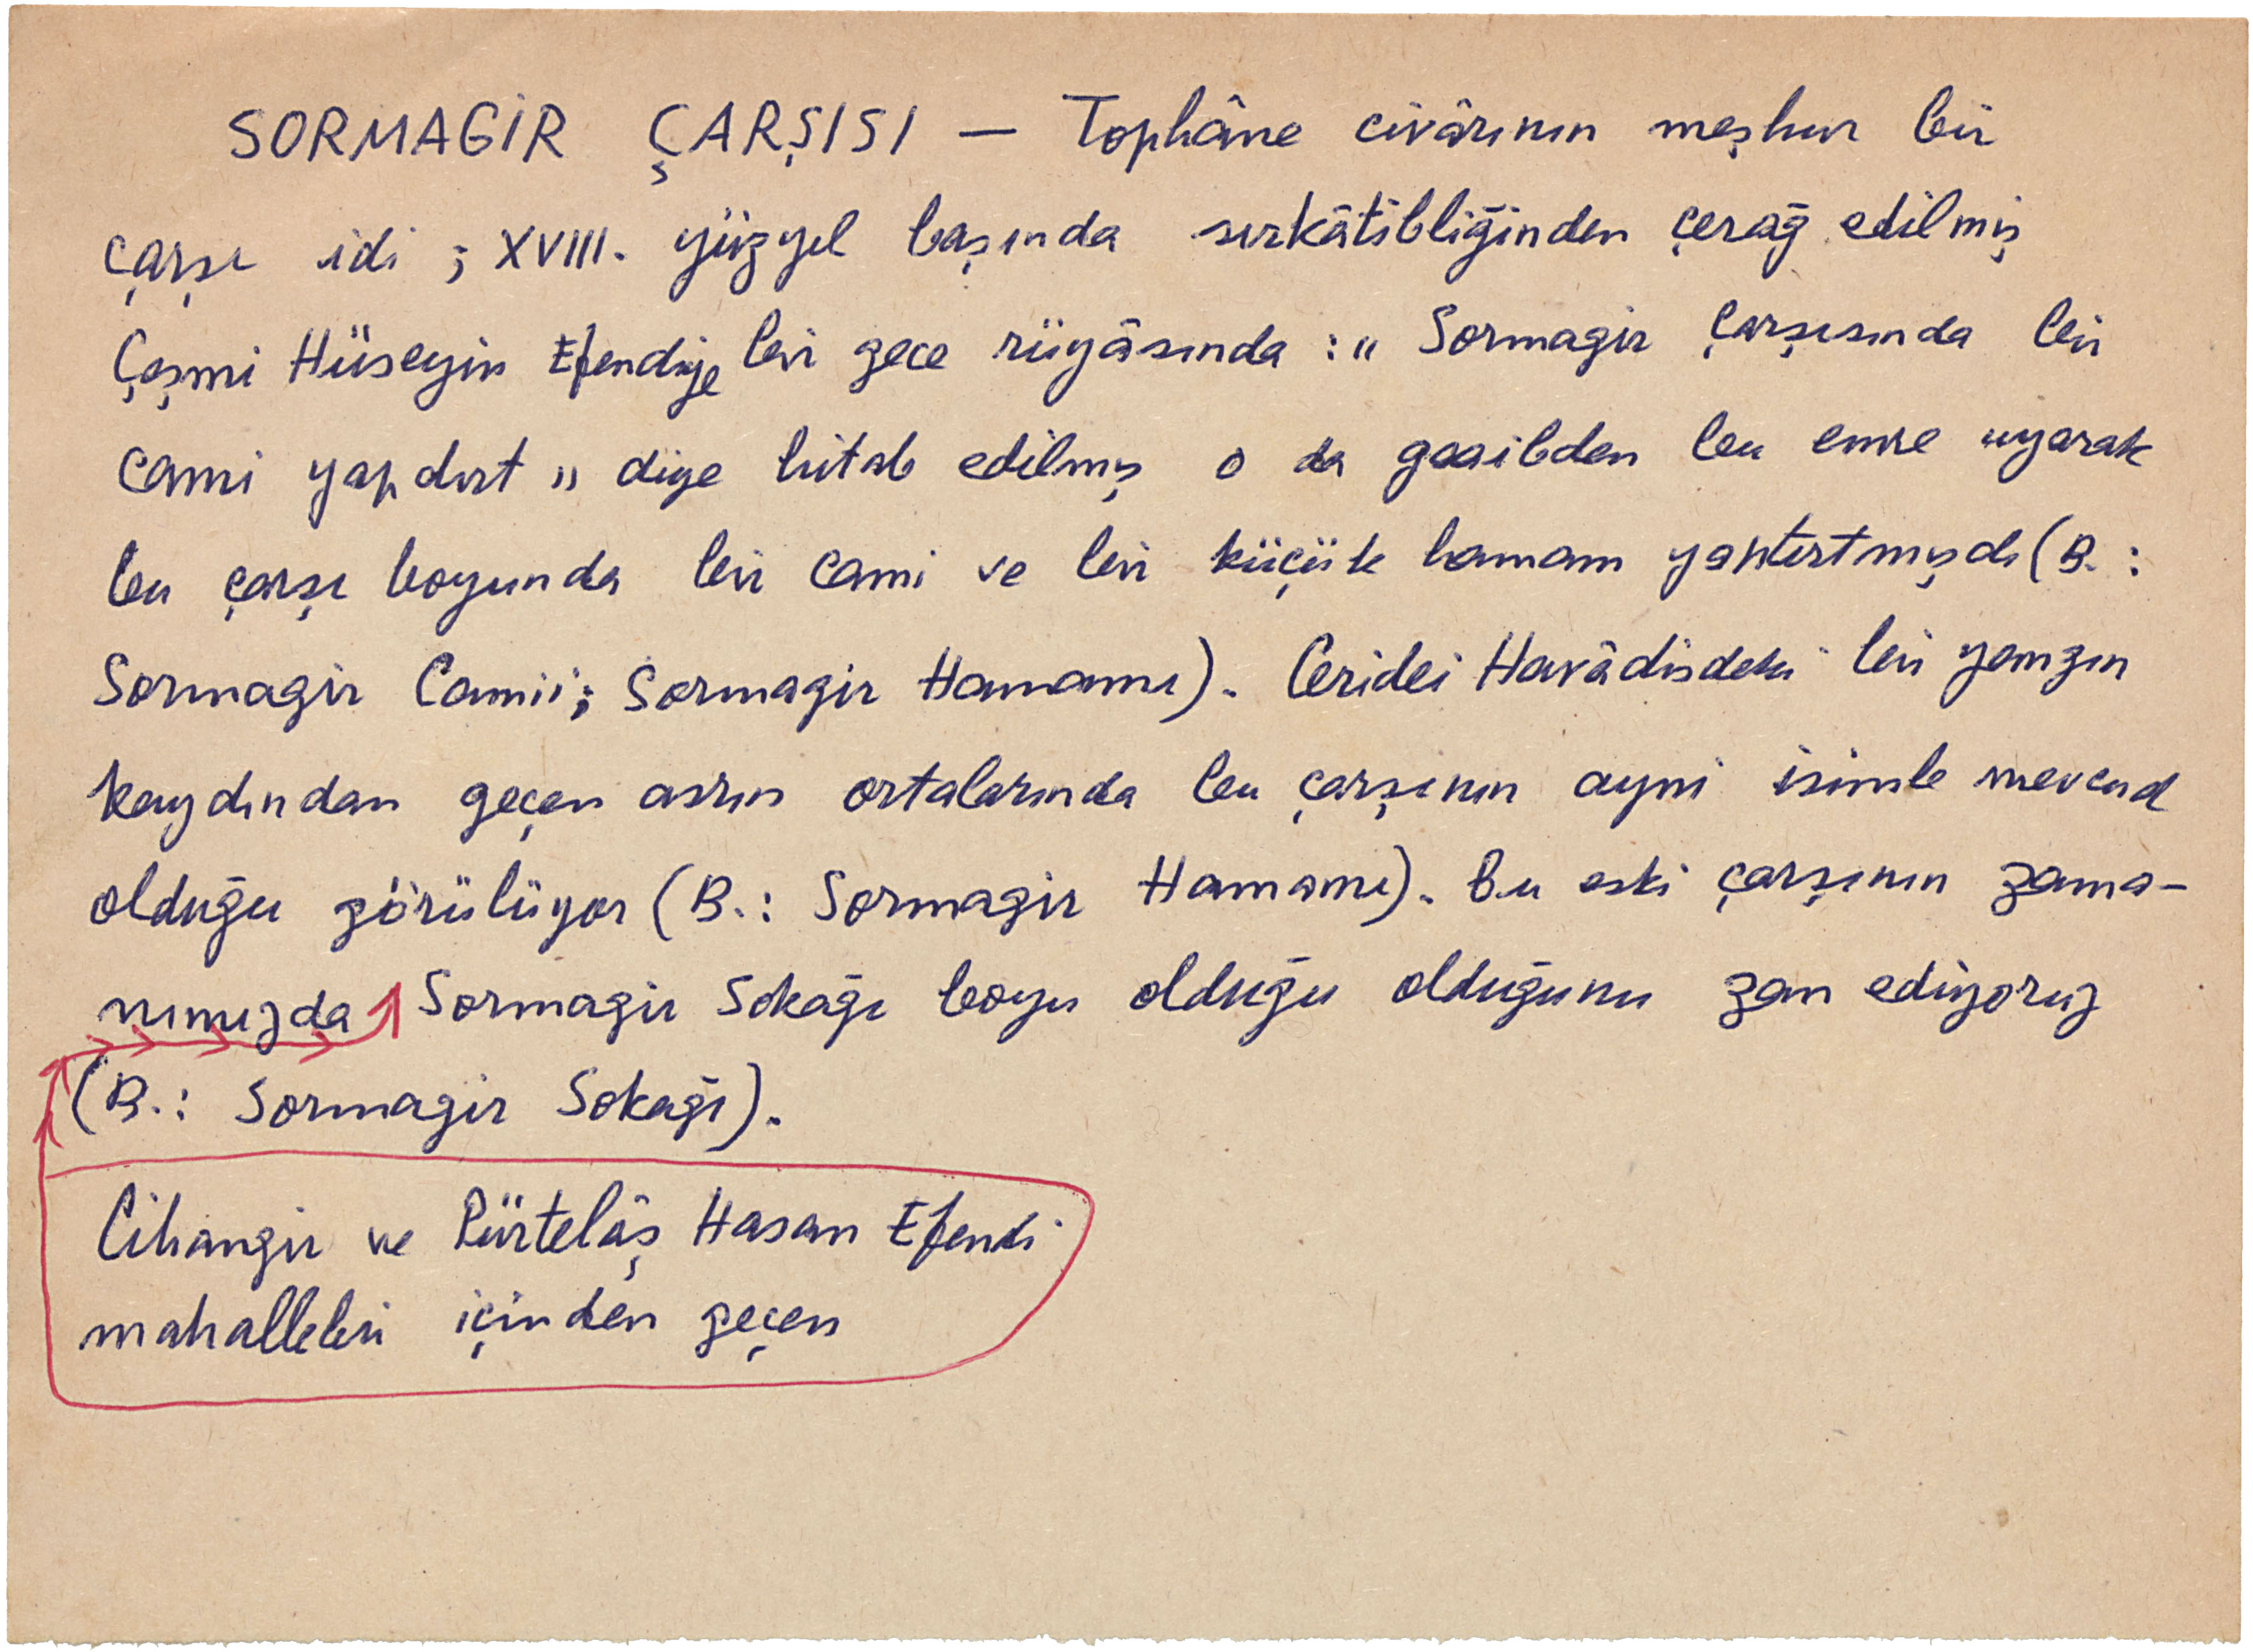 SORMAGİR ÇARŞISI — Tophâne civârının meşhur bir
çarşı idi ; XVIII. yüzyıl başında sırkâtibliğinden çerağ edilmiş
Çeşmi Hüseyin Efendiye bir gece rüyâsında : " Sormagir Çarşısında bir
cami yapdırt " diye hitab edilmiş o da gaaibden bu emre uyarak
bu çarşı boyunda bir cami ve bir küçük hamam yaptırtmışdı (B. :
Sormagir Camii; Sormagir Hamamı). Ceridei Havâdisdeki bir yangın
kaydından geçen asrın ortalarında bu çarşının ayni isimle mevcud
olduğu görülüyor (B.: Sormagir Hamamı). Bu eski çarşının zama-
nımızda Sormagir Sokağı boyu olduğu olduğunu zan ediyoruz
(B.: Sormagir Sokağı).
Cihangir ve Pürtelâş Hasan Efendi
mahalleleri içinden geçen